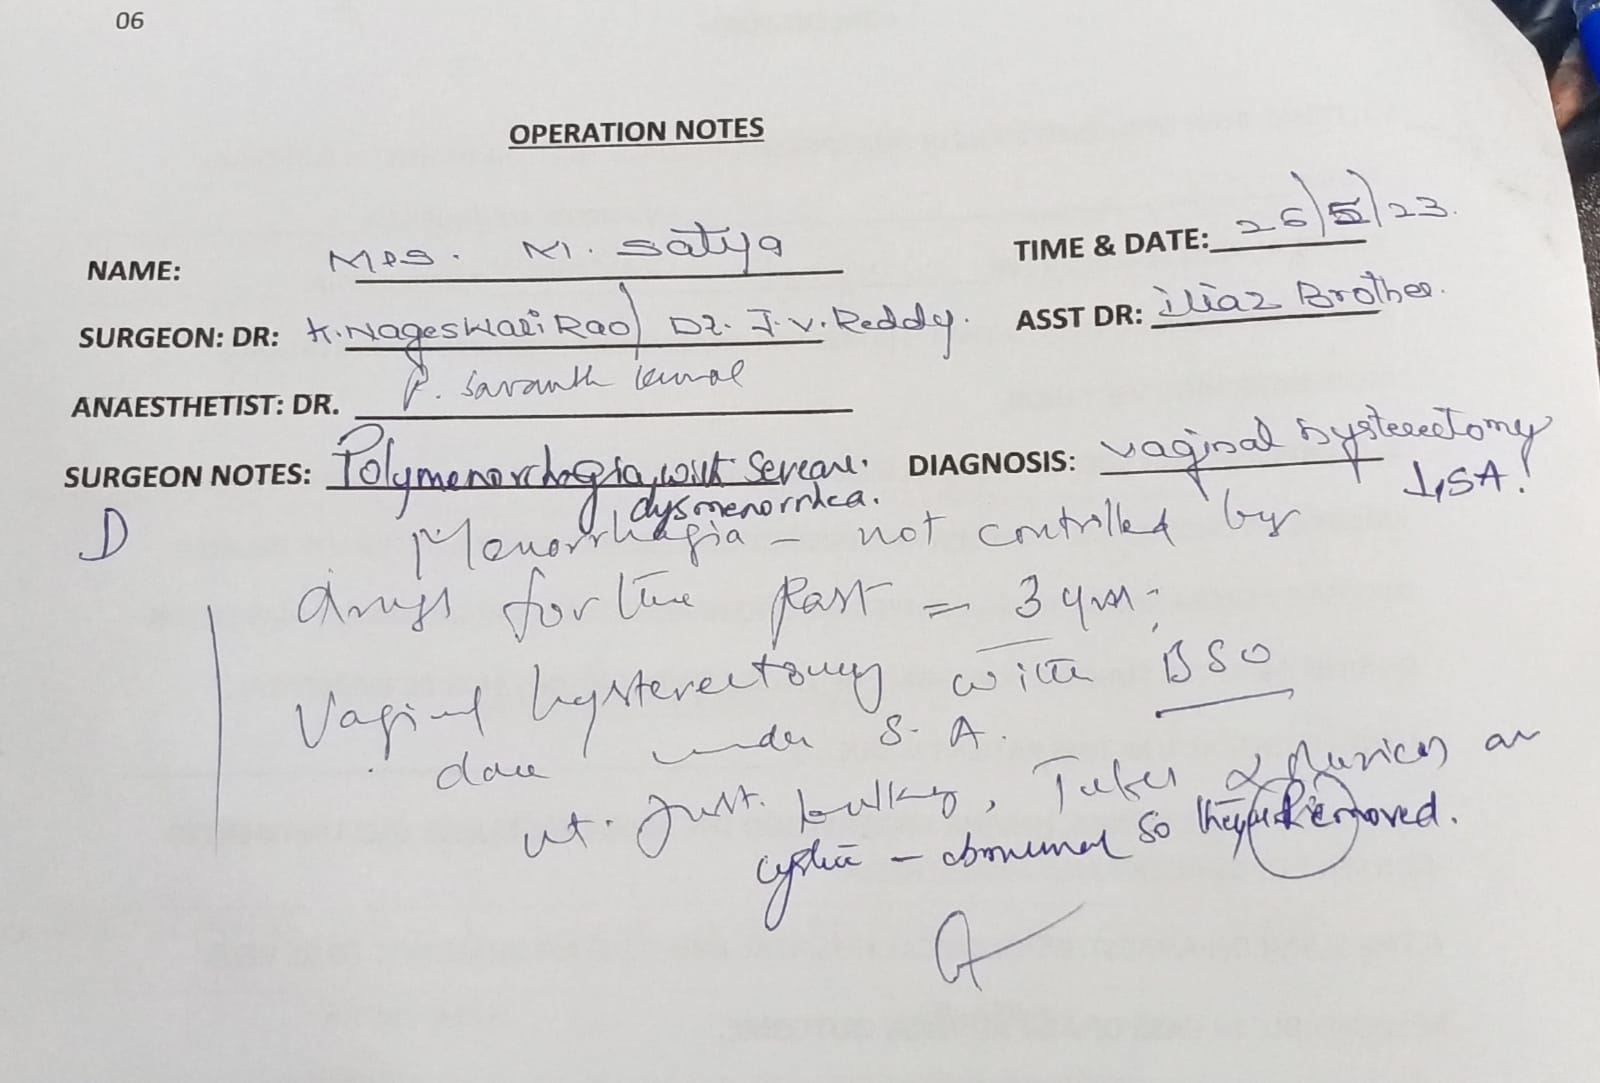 06
OPERATION NOTES
NAME: Mrs. M. Satya TIME & DATE: 26/5/23.
SURGEON: DR: K. Nageswari Rao / Dr. J. V. Reddy. ASST DR: iliaz Brother.
ANAESTHETIST: DR. P. Savanth Kumar
SURGEON NOTES: Polymenorrhagia, with Severe. DIAGNOSIS: vaginal hysterectomy
dysmenorrhea.
Menorrhagia - not controlled by
drugs for the Past = 3 yrs.
Vaginal hysterectomy with BSO
done under S. A.
ut. Just. bulky, Tubes & Ovaries are
cystic - abnormal so they are Removed.